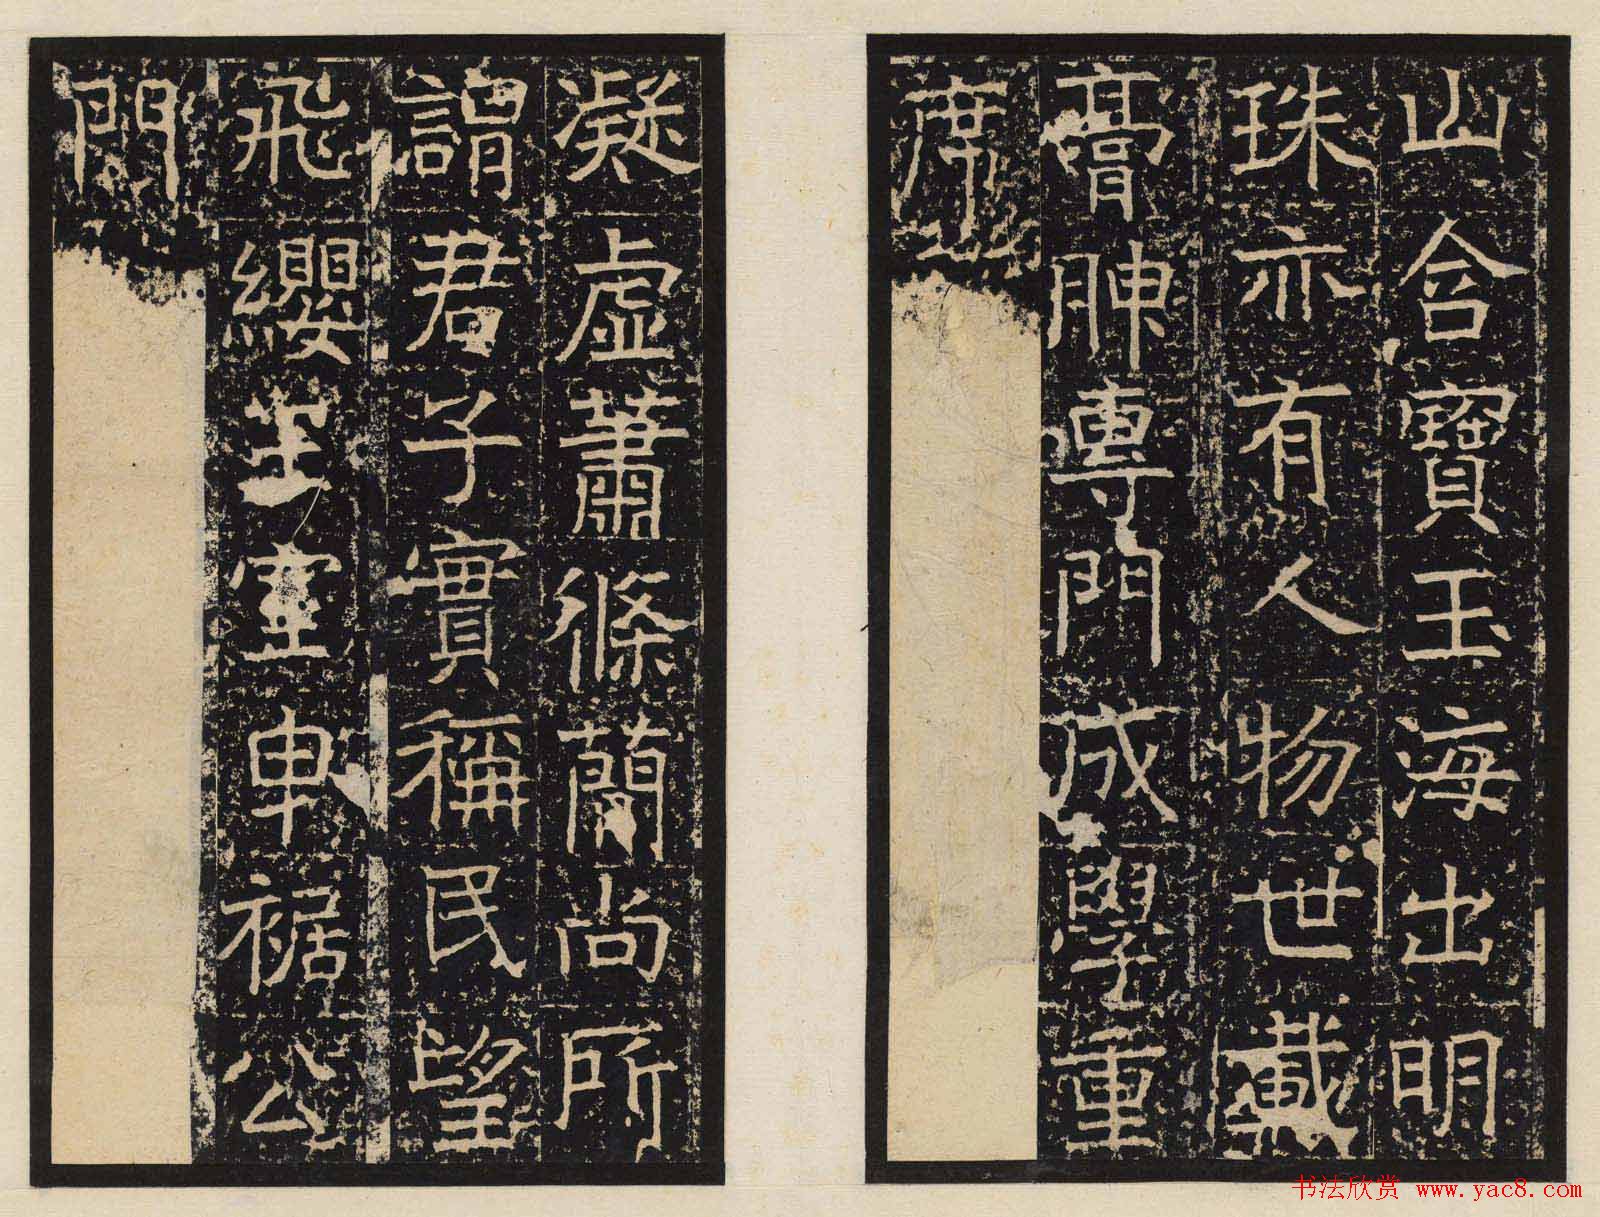 山含寶玉海出明
珠亦有人物世載
膏腴專門成學重
席
凝虛蕭條簡尚所
謂君子實稱民望
飛纓曳裾公
門
书法欣赏 www.yac8.com